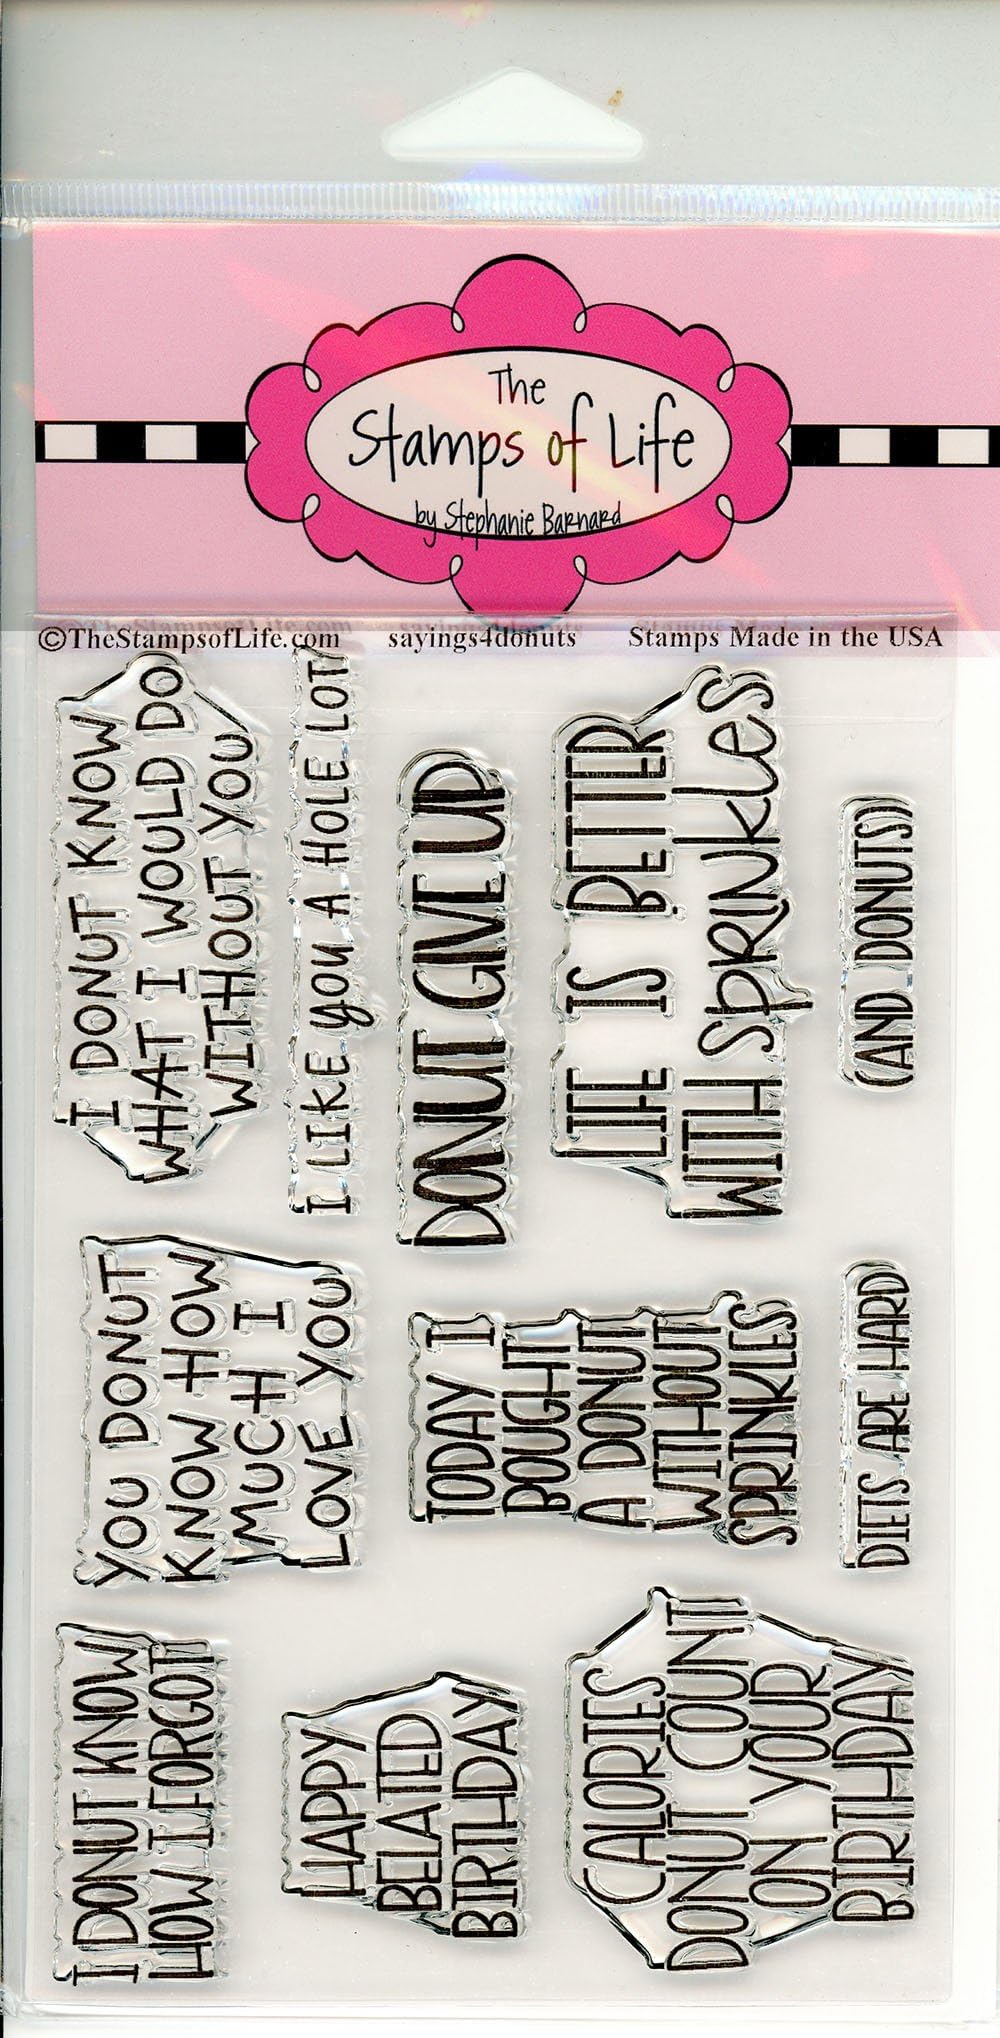 The
Stamps of Life
by Stephanie Barnard
©TheStampsofLife.com sayings4donuts Stamps Made in the USA
I DONUT KNOW
WHAT I WOULD DO
WITHOUT YOU
I LIKE YOU A HOLE LOT
DONUT GIVE UP
LIFE IS BETTER
WITH SPRINKLES
(AND DONUTS)
YOU DONUT
KNOW HOW
MUCH I
LOVE YOU
TODAY I
BOUGHT
A DONUT
WITHOUT
SPRINKLES
DIETS ARE HARD
I DONUT KNOW
HOW I FORGOT
HAPPY
BELATED
BIRTHDAY
CALORIES
DONUT COUNT
ON YOUR
BIRTHDAY